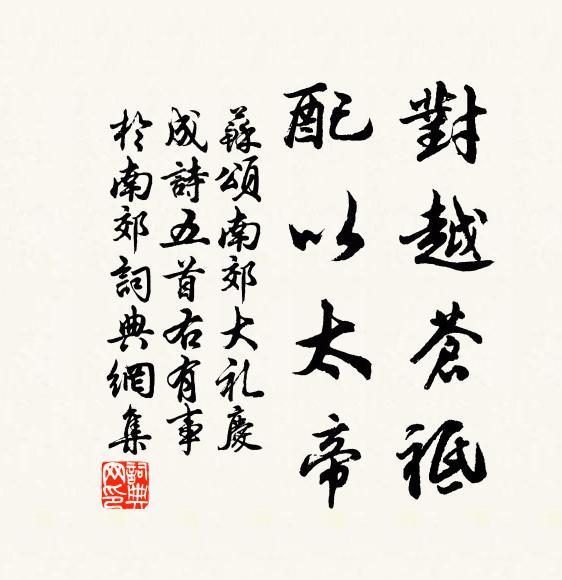 對越蒼祗
配以太帝
蘇頌南郊大礼慶
成詩五首右有事
於南郊詞典網集
詞典网印